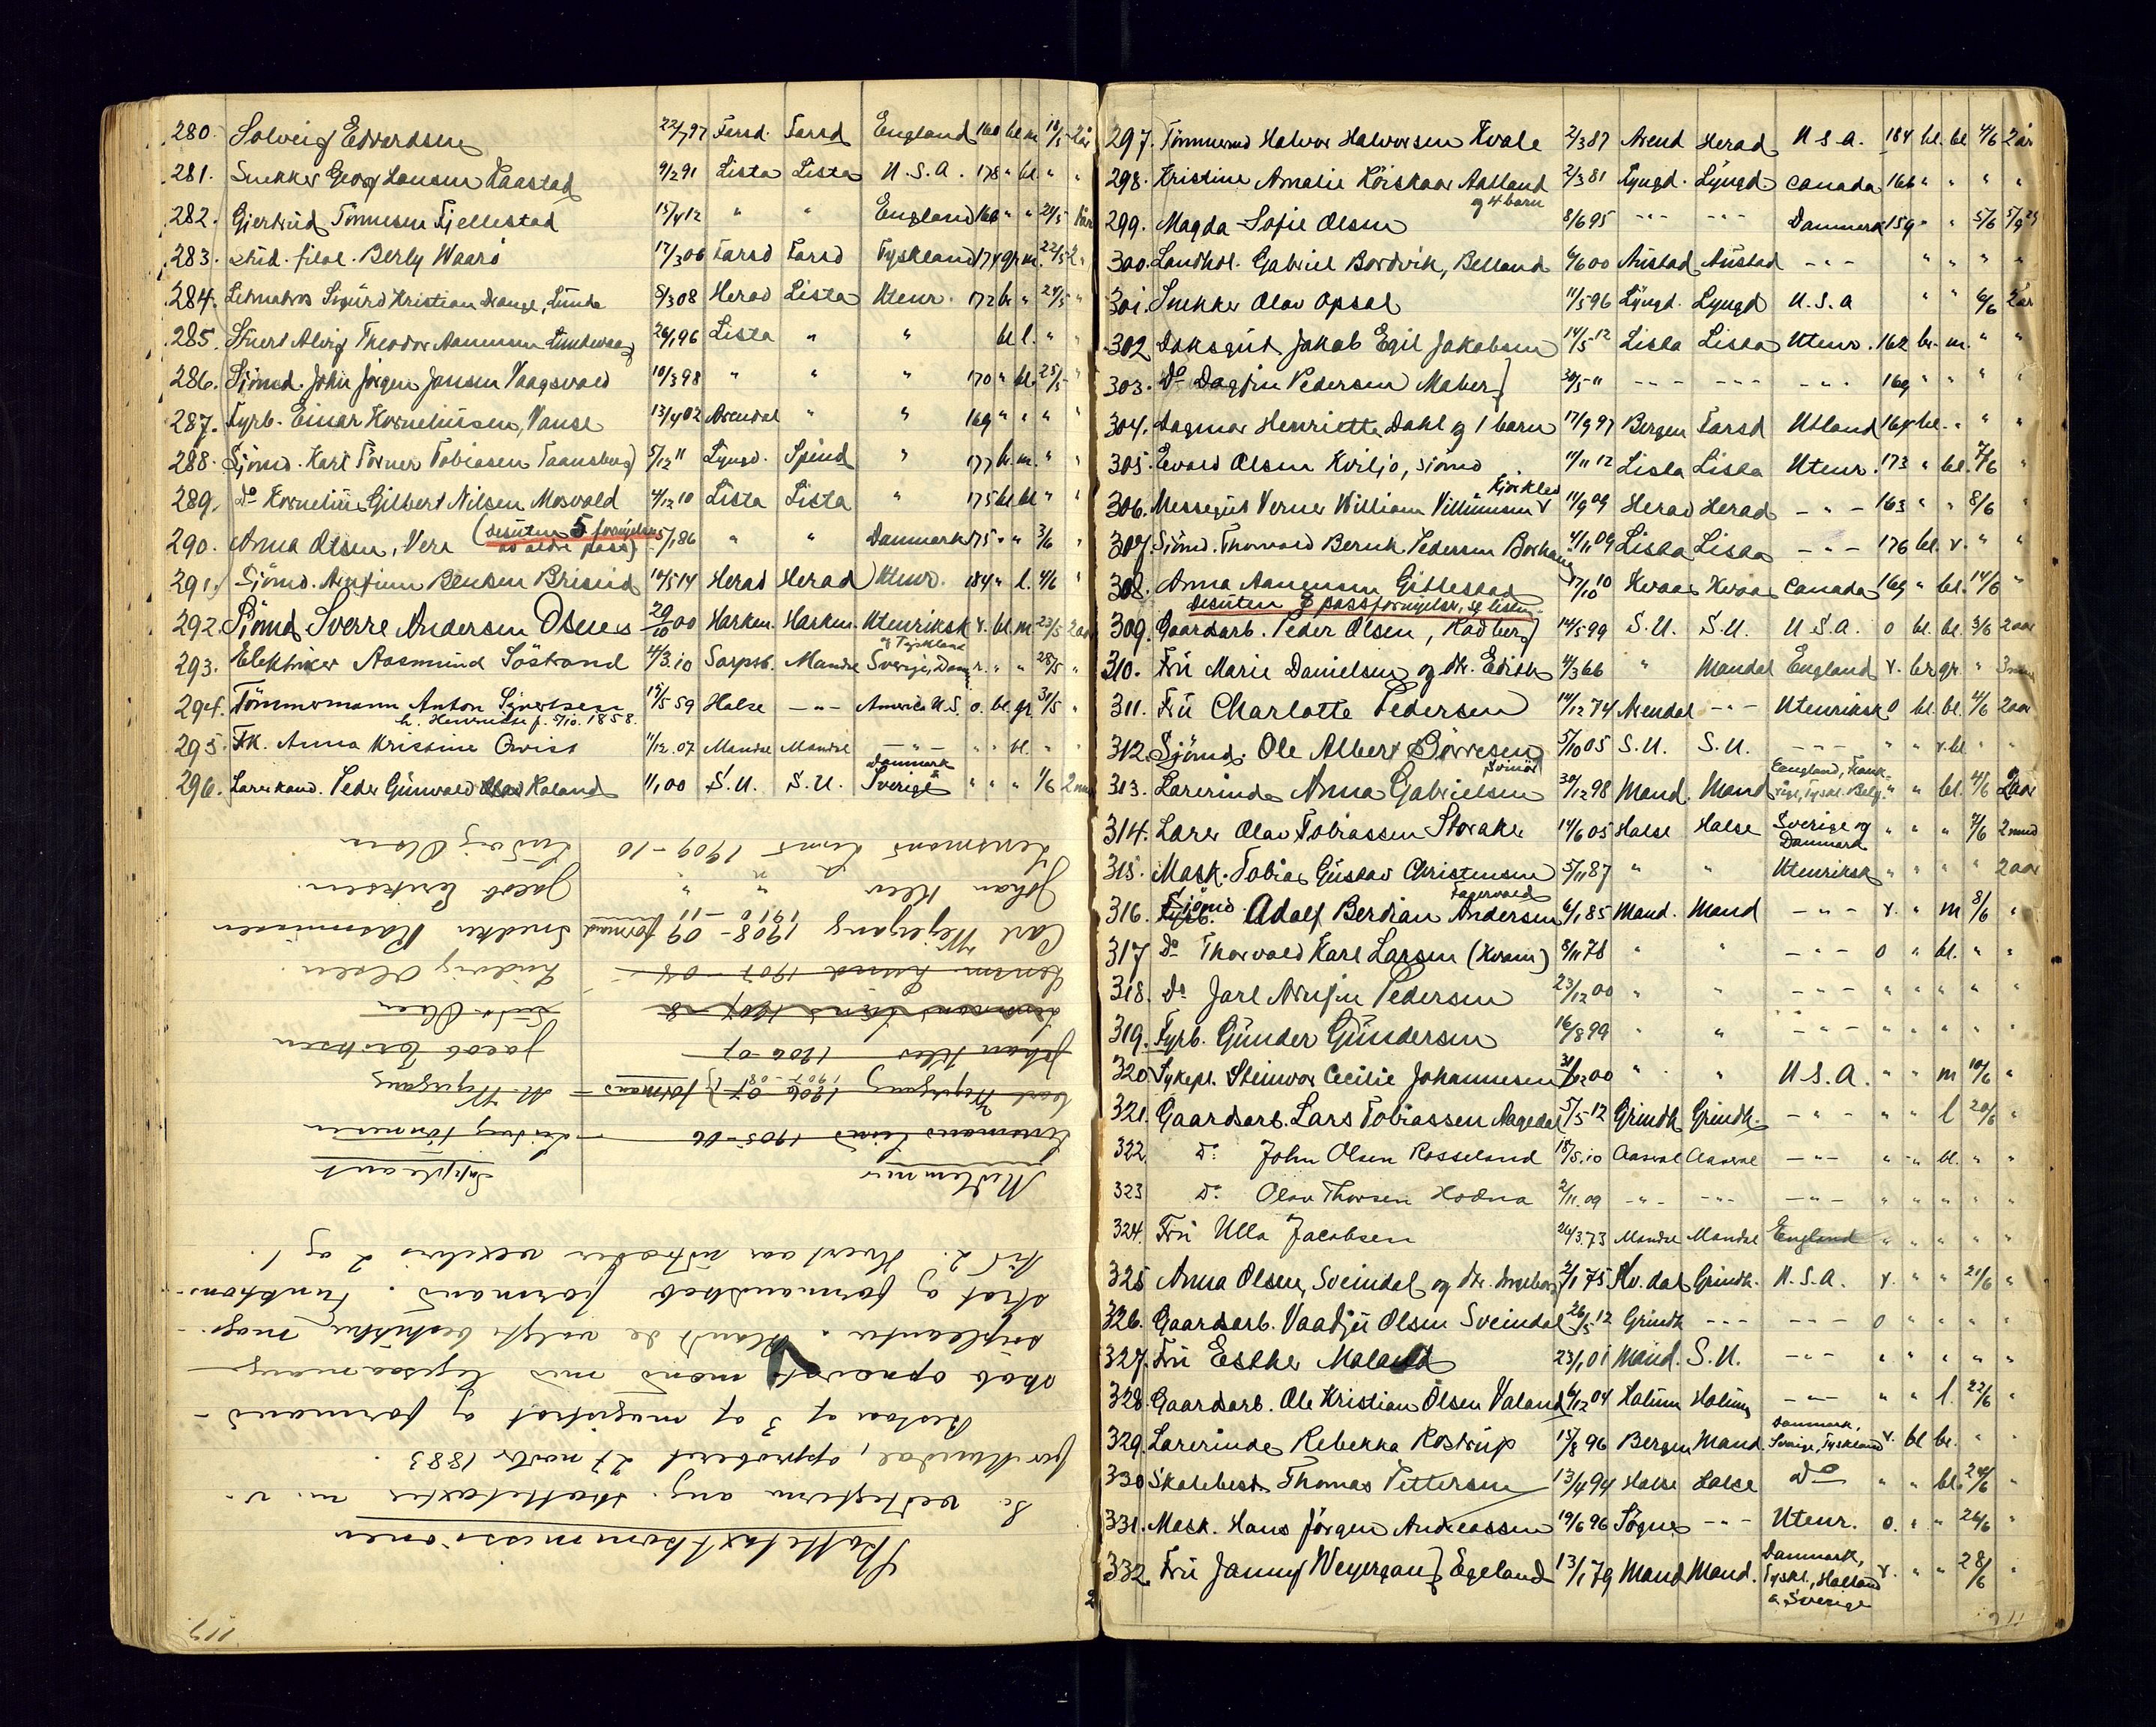 280. Solveig Edvardsen 22/7 97 Farsd. Farsd England 160 bl. m 18/5 2 år
281. Snekker Georg Lausen Kaastad 9/2 91 Lista Lista U.S.A. 178 " bl. " "
282. Gjertrud Tønnesen Fjellestad 15/4 12 " " England 168 " " 21/5
283. Stud. filol. Berly Waarø 17/3 06 Farsd Farsd Tyskland 174 gr. m. 22/5 2 "
284. Letmatros Sigurd Kristian Drange, Lunde 8/3 08 Herad Lista Utenr. 172 br " 24/5 "
285. Stuert Alvig Theodor Aanensen Lundevaag 26/1 96 Lista " " bl l. " "
286. Sjömd. John Jørgen Jansen Vaagsvold 10/3 98 " " " 170 " bl. 25/5 "
287. Fyrb. Einar Korneliussen, Vanse 13/4 02 Arendal " " 169 " " " "
288. Sjömd. Karl Torner Tobiasen Taansberg 5/12 11 Lyngd. Spind " 177 br. m. " "
289. Do Kornelius Gilbert Nilsen Mosvold 4/12 10 Lista Lista " 175 bl bl " "
(desuten 5 fornyelser
av eldre pass)
290. Anna Olsen, Vere 5/1 86 " " Danmark 175 " " 3/6 "
291. Sjömd. Arnfinn Bentsen Briseid 10/5 14 Herad Herad Utenr. 184 " l. 4/6 "
292. Sjömd Sverre Andersen Osnes 20/10 00 Harkm. Harkm. Utenriksk v. bl. m 23/5 2 aar
og Tyskland
293. Elektriker Aasmund Söstrand 4/3. 10 Sarpsb. Mandal Sverige, Danm r. " " 28/5 "
294. Tömmermann Anton Sivertsen 15/5 59 Halse -"- America U.S. o. bl. gr 31/5 "
h. Henriette f. 5/10. 1858.
295. Frk. Anna Kristine Qvist 11/12. 07 Mandal Mandal -"- " " bl. " "
Danmark
296. Lærerkand. Peder Gunvald Roland 1/1 00 S.U. S.U. Sverige " " " 1/6 2 mnd
Skattetaxtkommissionen
Se vedtægterne ang. skattetaxter m. v.
for Mandal, approberet 27 novbr 1883.
Bestaar af 3 af magistrat og formand-
skab opnævnte mænd med ligesaamange
suppleanter. Blandt de valgte beskikker magi-
strat og formandskab formand. Funktions-
tid 2. Hvert aar udtræder vexelvis 2 og 1.
Medlemmer Suppleant
Lensmand Lund 1905-06 Ludvig Tönnesen
Carl Wejergang 1906-07 1907-08 formand M. Wejergang
Johan Klev 1906-07 Jacob Eriksen
Lensmand Lund 1907-08 Ludv. Olsen
Lensm. Lund 1907-08 Ludvig Olsen.
Carl Wejergang 1908-09 formand Snedker Rasmussen
1910-11
Johan Klev " " Jacob Eriksen.
Lensmand Lund 1909-10 Ludvig Olsen
117
297. Tömmermd Halvor Halvorsen Kvale 2/3 87 Arend Herad U S A. 184 bl. bl 4/6 2 år
298. Kristine Amalie Röiskaar Aatland 2/3 81 Lyngd. Lyngd Canada 166 " " " "
og 4 barn
299. Magda Sofie Olsen 8/6 95 -"- -"- Danmark 159 " " 5/6 5/9 29
300. Landhol. Gabriel Bordvik, Belland 4/6 00 Austad Austad -"- " " " "
301. Snekker Olav Opsal 11/5 96 Lyngd. Lyngd U.S.a " " 6/6 2 år
302. Dæksgut Jakob Egil Jakobsen 14/5 12 Lista Lista Utenr. 162 br. m. " "
303. Do Dagfin Pedersen Maberg 30/5 11 -"- -"- -"- 169 " " " "
304. Dagmar Henriette Dahl og 1 barn 17/9 97 Bergen Farsd Utland 164 bl. " " "
305. Evald Olsen Kviljo, sjömd 11/11 12 Lista Lista Utenr. 173 " bl. 7/6 "
Kjørkleiv
306. Messegut Verner William Villumsen 11/9 09 Herad Herad -"- 163 " " 8/6 "
307. Sjömd. Thorvald Bernh. Pedersen Borhaug 4/11 09 Lista Lista -"- 176 bl. v. " "
308. Anna Aanensen Gitlestad 17/10 10 Kvaas Kvaas Canada 169 " bl. 14/6 "
desuten 8 passfornyelser, se listen.
309. Gaardarb. Peder Olsen, Kadberg 14/5 99 S.U. S.U. U S.A. o bl. bl. 3/6 2 aar
310. Fru Marie Danielsen og dtr. Edith 4/3 66 " Mandal England v. br gr. " 3 mnd
311. Fru Charlotte Pedersen 14/12 74 Arendal -"- Utenriksk o bl. bl. 4/6 2 aar
312. Sjömd. Ole Albert Börresen 5/10 05 S.U. S.U. -"- " " v. bl " "
Svinör
England, Frank-
313. Lærerinde Anna Gabrielsen 30/12 98 Mand. Mand rige, Tyskl. Belg. " " bl. 4/6 2 aar
314. Lærer Olav Tobiassen Storaker 14/6 05 Halse Halse Sverige og " " " 7/6 2 mnd
Danmark
315. Mask. Tobias Gustav Christensen 5/11 87 " " Utenriksk " " " " 2 aar
Sjömd Fagervold
316. Fyrb. Adolf Berdian Andersen 6/1 85 Mand. Mand -"- v. " m 8/6 "
317 Do Thorvald Karl Larsen (Kvam) 8/11 78 " " -"- o " bl. " "
318. Do Jarl Arnfin Pedersen 23/12 00 " " -"- " " " " "
319. Fyrb. Gunder Gundersen 16/8 99 " " -"- " " " " "
320. Sykepl. Steinvor Cecilie Johannesen 31/12 00 " " U S.A. " " m 10/6 "
321. Gaardsarb. Lars Tobiassen Aagedal 5/5 12 Grindh Grindh. -"- " " l 20/6 "
322. Do John Olsen Rosseland 18/5. 10 Aaseral Aaseral -"- " " bl. " "
323 Do Olav Thorsen Hodna 2/11. 09 -"- -"- -"- " " " " "
324. Fru Ulla Jacobsen 26/3. 73 Mandal Mandal England " " " " "
325 Anna Olsen, Sveindal og dtr. Ingeborg 2/1 75 Kv. dal Grindh. U.S.A. v. " " 21/6 "
326. Gaardarb. Vaadjú Olsen Sveindal 26/5 12 Grindh -"- -"- o " " " "
327. Fru Esther Maland 23/1 01 Mand. S.U. -"- " " " " "
328. Gaardarb. Ole Kristian Olsen Valand 6/12 04 Holum Holum -"- " " l. 22/6 "
Danmark,
329. Lærerinde Rebekka Rostrup 15/8 96 Bergen Mand. Sverige, Tyskland v. bl br. " "
330 Skolebest. Thomas Pettersen 13/4 94 Halse Halse Do " " bl. 24/6 "
331. Mask. Hans Jörgen Andreassen 19/6 96 Sögne -"- Utenr. o. " " 26/6 "
Danmark,
332. Fru Janny Weyergang Egeland 13/1 79 Mand Mand. Tyskl., Holland v. " " 28/6 "
& Sverige